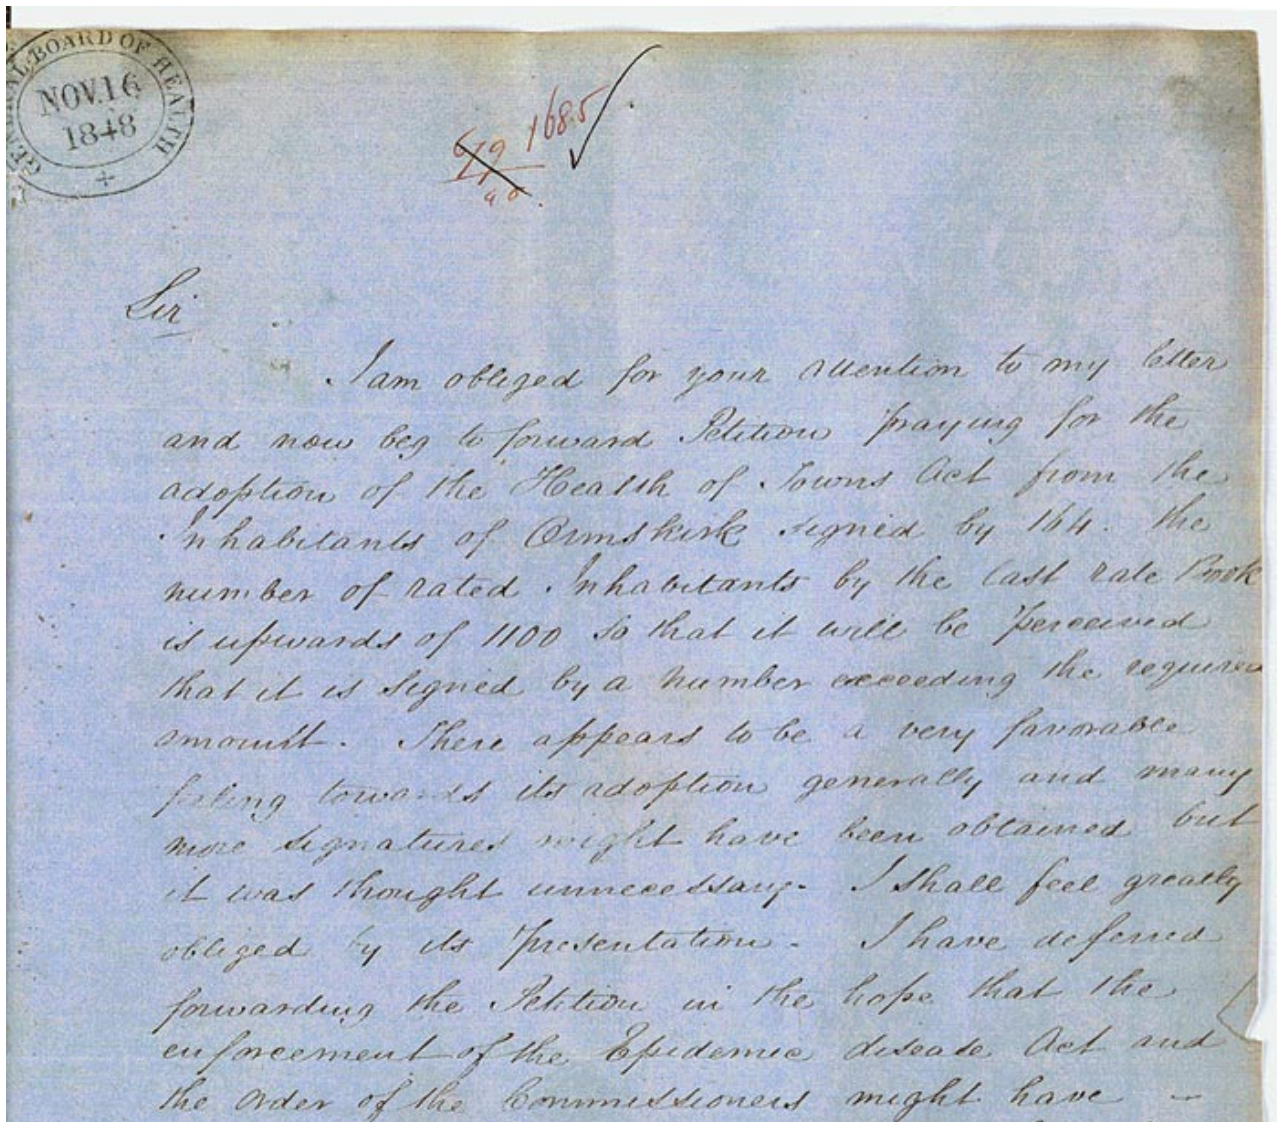 GENERAL BOARD OF HEALTH
NOV. 16
1848
1685
619
Sir
I am obliged for your attention to my letter
and now beg to forward Petition praying for the
adoption of the Health of Towns Act from the
Inhabitants of Ormskirk signed by 164. the
number of rated Inhabitants by the last rate Book
is upwards of 1100 so that it will be perceived
that it is signed by a number exceeding the required
amount. There appears to be a very favorable
feeling towards its adoption generally and many
more signatures might have been obtained but
it was thought unnecessary. I shall feel greatly
obliged by its presentation - I have deferred
forwarding the Petition in the hope that the
enforcement of the Epidemic disease Act and
the order of the Commissioners might have -